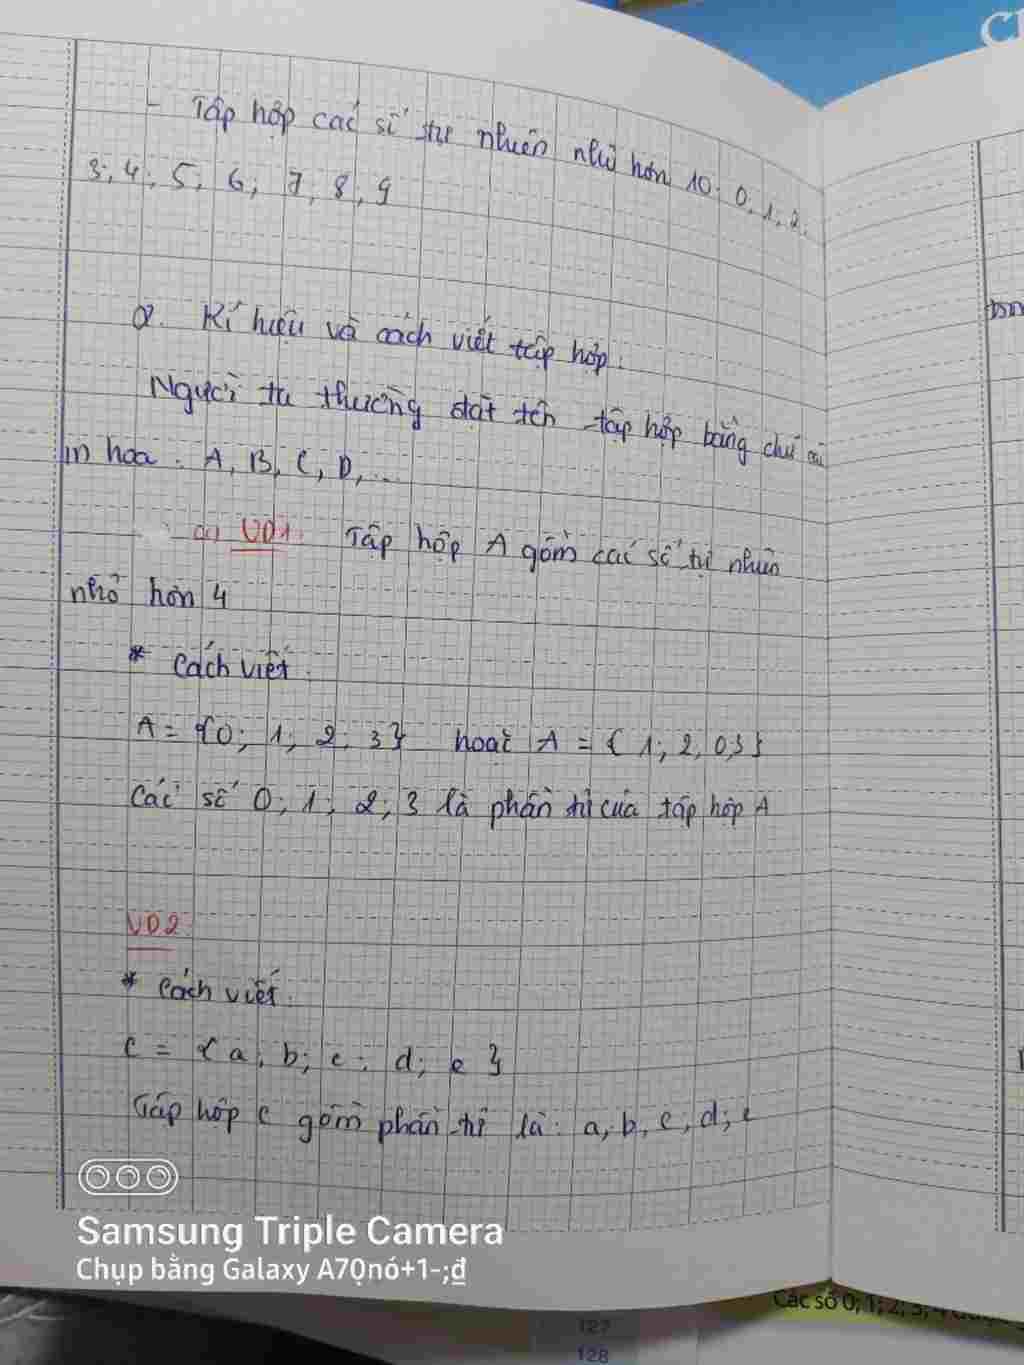 - Tập hợp các số tự nhiên nhỏ hơn 10: 0; 1; 2;
3; 4; 5; 6; 7; 8; 9
2. Kí hiệu và cách viết tập hợp:
Người ta thường đặt tên tập hợp bằng chữ cái
in hoa: A, B, C, D, ...
a) VD1: Tập hợp A gồm các số tự nhiên
nhỏ hơn 4
* Cách viết:
A = {0; 1; 2; 3} hoặc A = { 1; 2, 0, 3}
Các số 0; 1; 2; 3 là phần tử của tập hợp A
VD2:
* Cách viết:
C = { a, b; c; d; e }
Tập hợp C gồm phần tử là: a, b, c, d; e
Samsung Triple Camera
Chụp bằng Galaxy A70nó+1-;₫
Các số 0; 1; 2; 3; 4
127
128